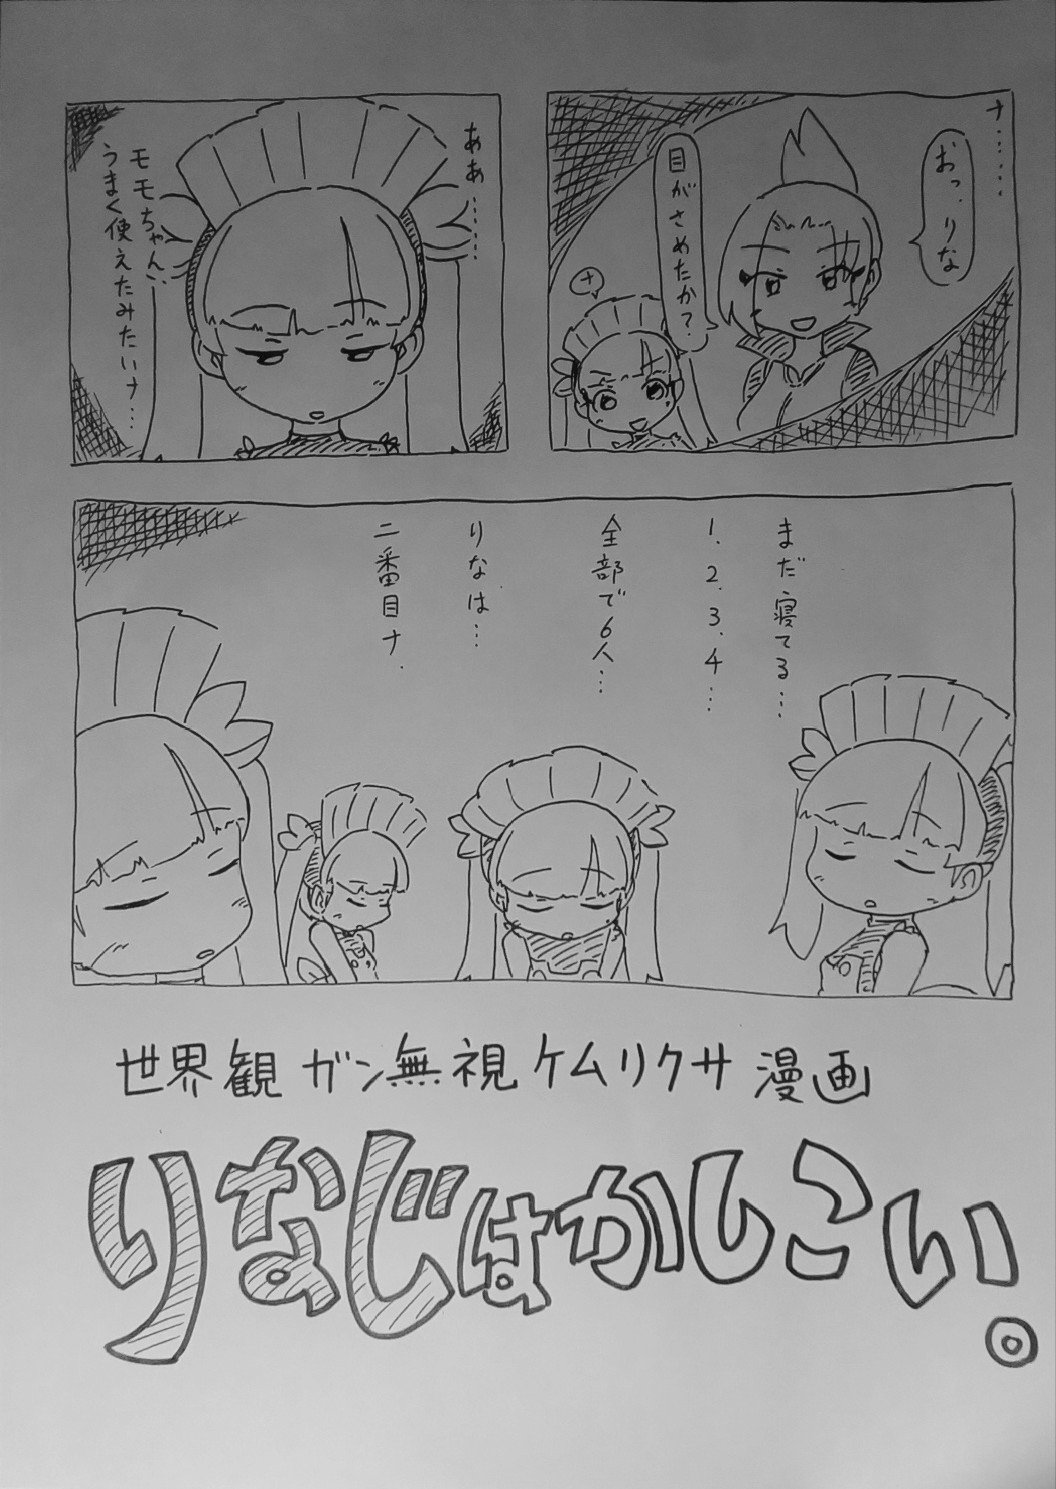 ナ……
おっ、りな
目がさめたか？
ナ
ああ……
モモちゃん、
うまく使えたみたいナ…
まだ寝てる…
1.2.3.4…
全部で6人…
りなは…
二番目ナ.
世界観ガン無視ケムリクサ漫画
りなじはかしこい。